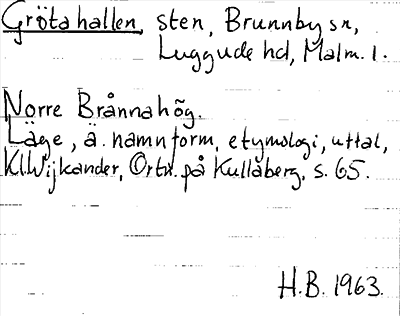 Grötahallen, sten, Brunnby sn,
Luggude hd, Malm. l.
Norre Brånnahõg.
Läge, ä. namnform, etymologi, uttal,
Kl.Wijkander, Ortn. på Kullaberg, s. 65.
H.B. 1963.